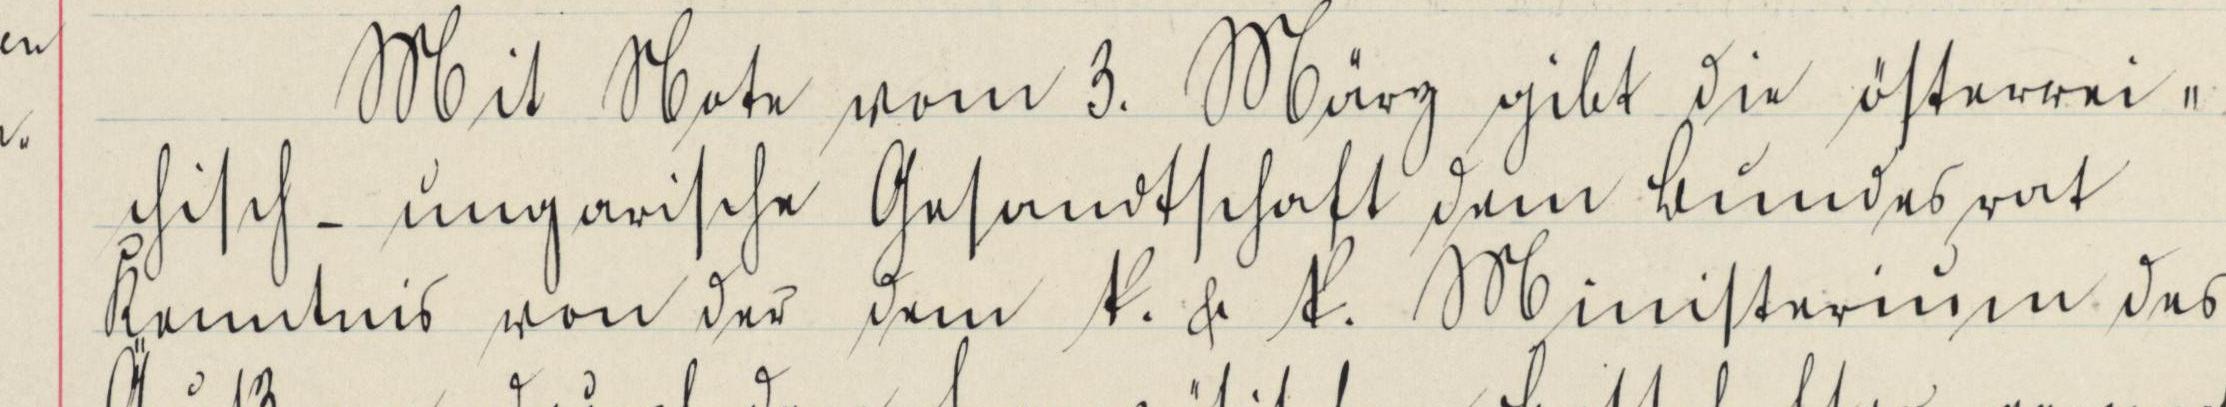 Mit Note vom 3. März gibt die österrei-
chisch-ungarische Gesandtschaft dem Bundesrat
Kenntnis von der dem k. & k. Ministerium des